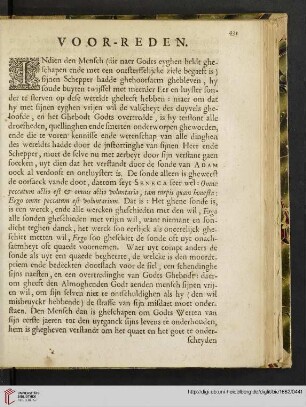 VOOR-REDEN.
INdien den Mensch (die naer Godts eyghen beldt ghe-
schapen ende met een onsterffelijcke ziele begaeft is)
sijnen Schepper hadde ghehoorsaem ghebleven, hy
soude buyten twijffel met meerder Eer en luyster son-
der te sterven op dese wereldt gheleeft hebben: maer om dat
hy met sijnen eyghen vrijen wil de valscheyt des duyvels ghe-
loofde, en het Ghebodt Godts overtrede, is hy terstont alle
droefheden, quellinghen ende sieckten onderworpen gheworden,
ende die te voren kennisse ende wetenschap van alle dinghen
des wereldts hadde door de instortinghe van sijnen Heer ende
Schepper, moet de selve nu met arebeyt door sijn verstant gaen
soecken, uyt dien dat het verstandt door de sonde van ADAM
oock al verdooft en ontluystert is. De sonde alleen is gheweest
de oorsaeck vande doot, daerom seyt SENECA seer wel: Omne
peccatum actus est & omnis actus voluntarius, tam turpis quam honestus:
Ergo omne peccatum est voluntarium. Dat is: Het ghene sonde is,
is een werck, ende alle wercken gheschieden met den wil, Ergo
alle sonden gheschieden met vrijen wil, want niemant en son-
dicht teghen danck, het werck soo eerlijck als oneerelijck ghe-
schiet metten wil, Ergo soo gheschiet de sonde oft uyt onach-
saemheyt oft quaedt voornemen. Waer uyt compt anders de
sonde als uyt een quaede begheerte, de welcke is den moordt-
priem ende bedeckten doodtlaeck voor de siel, een schendinghe
sijns naesten, en een overtredinghe van Godts Ghebodt? daer-
om gheeft den Almoghenden Godt aenden mensch sijnen vrijen
wil, om sijn selven niet te ontschuldighen als hy (den wil
misbruyckt hebbende) de straffe van sijn misdaet moet onder-
staen. Den Mensch dan is gheschapen om Godts Wetten van
sijn eerste jaeren tot den uyrganck sijns levens te onderhouden,
hem is ghegheven verstandt om het quaet en het goet te onder-
scheyden
http://digi.ub.uni-heidelberg.de/diglit/bie1662/0441
UNIVERSITÄTS-
BIBLIOTHEK
HEIDELBERG